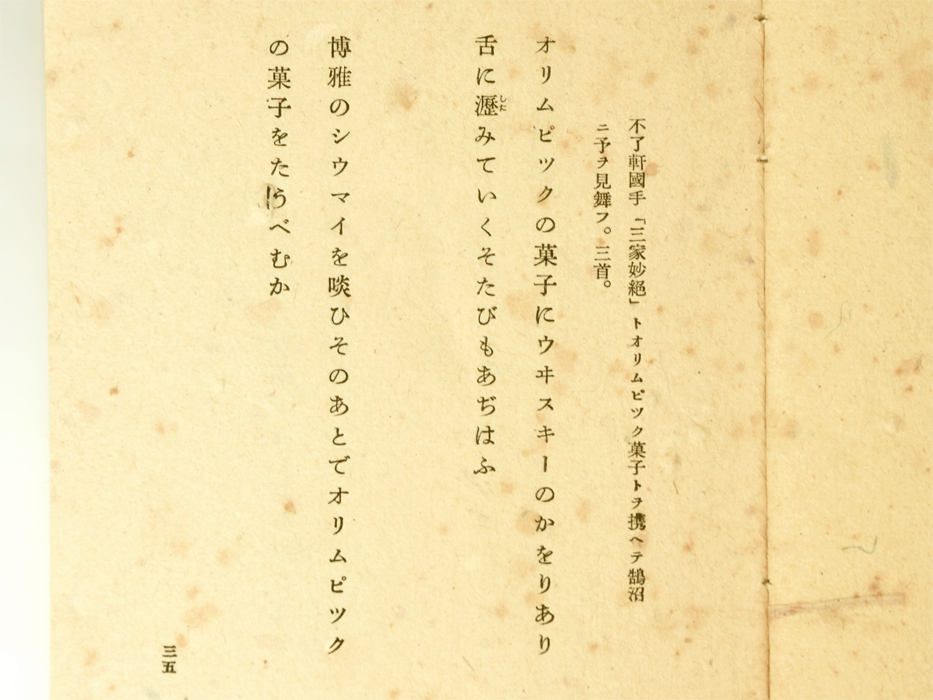 不了軒國手「三家妙絕」トオリムピツク菓子トヲ携ヘテ鵠沼
ニ予ヲ見舞フ。三首。
オリムピツクの菓子にウヰスキーのかをりあり
舌に瀝みていくそたびもあぢはふ
した
博雅のシウマイを啖ひそのあとでオリムピツク
の菓子をたうべむか
三五